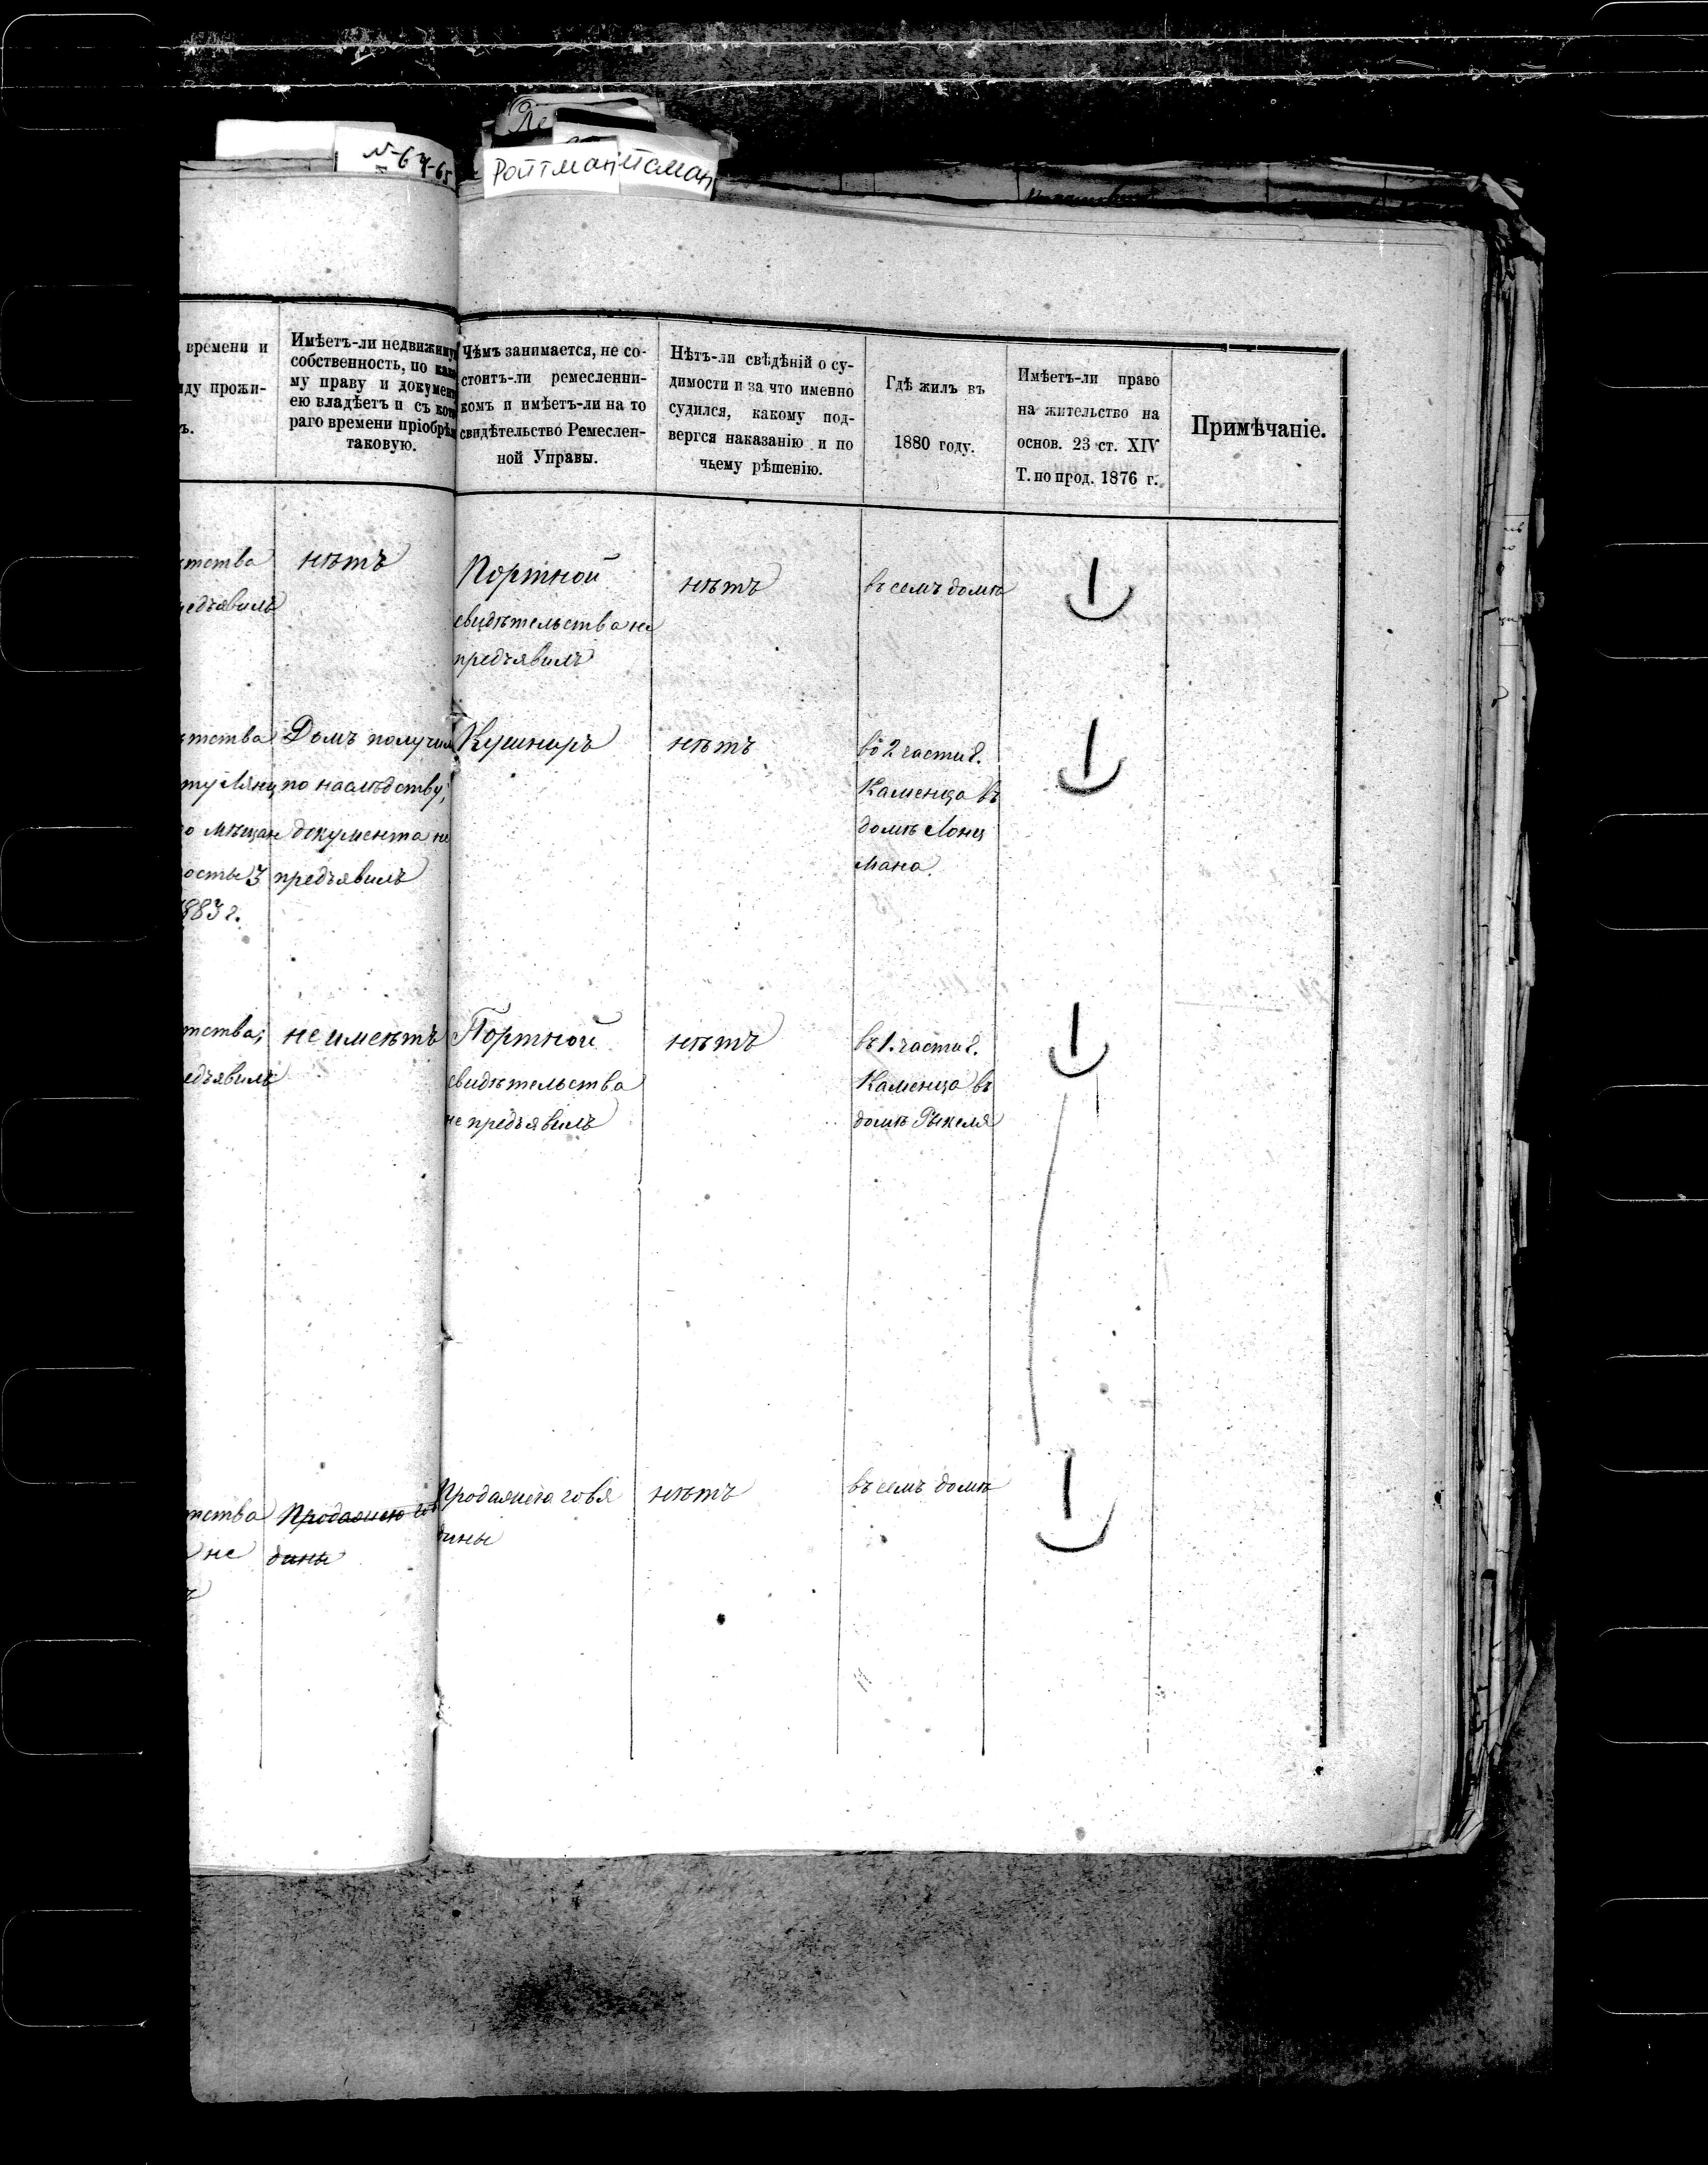 N-64-65
Ройтман
йсман
времени и
ду прожи-
ъ.
Имѣетъ-ли недвижимую
собственность, по како
му праву и документ
ею владѣетъ и съ кото
раго времени пріобрѣл
таковую.
Чѣмъ занимается, не со-
стоитъ-ли ремесленни-
комъ и имѣетъ-ли на то
свидѣтельство Ремеслен-
ной Управы.
Нѣтъ-ли свѣдѣній о су-
димости и за что именно
судился, какому под-
вергся наказанію и по
чьему рѣшенію.
Гдѣ жилъ въ
1880 году.
Имѣетъ-ли право
на жительство на
основ. 23 ст. XIV
Т. по прод. 1876 г.
Примѣчаніе.
тства
едъявилъ
нѣтъ
Портной
свидѣтельства не
предъявилъ
нѣтъ
въ семъ домѣ
тства
ту Лянц
о мѣщан
ость 3
1883 г.
Домъ получил
по наслѣдству,
документа не
предъявилъ
Кушниръ
нѣтъ
во 2 части г.
Каменца въ
домѣ Лонц
мана.
тства;
едъявилъ
не имѣетъ
Портной
свидѣтельства
не предъявилъ
нѣтъ
въ 1. части г.
Каменца въ
домѣ Рыкеля
тства
не
ъ
Продажею гов
дины
Продажею говя
дины
нѣтъ
въ семъ домѣ